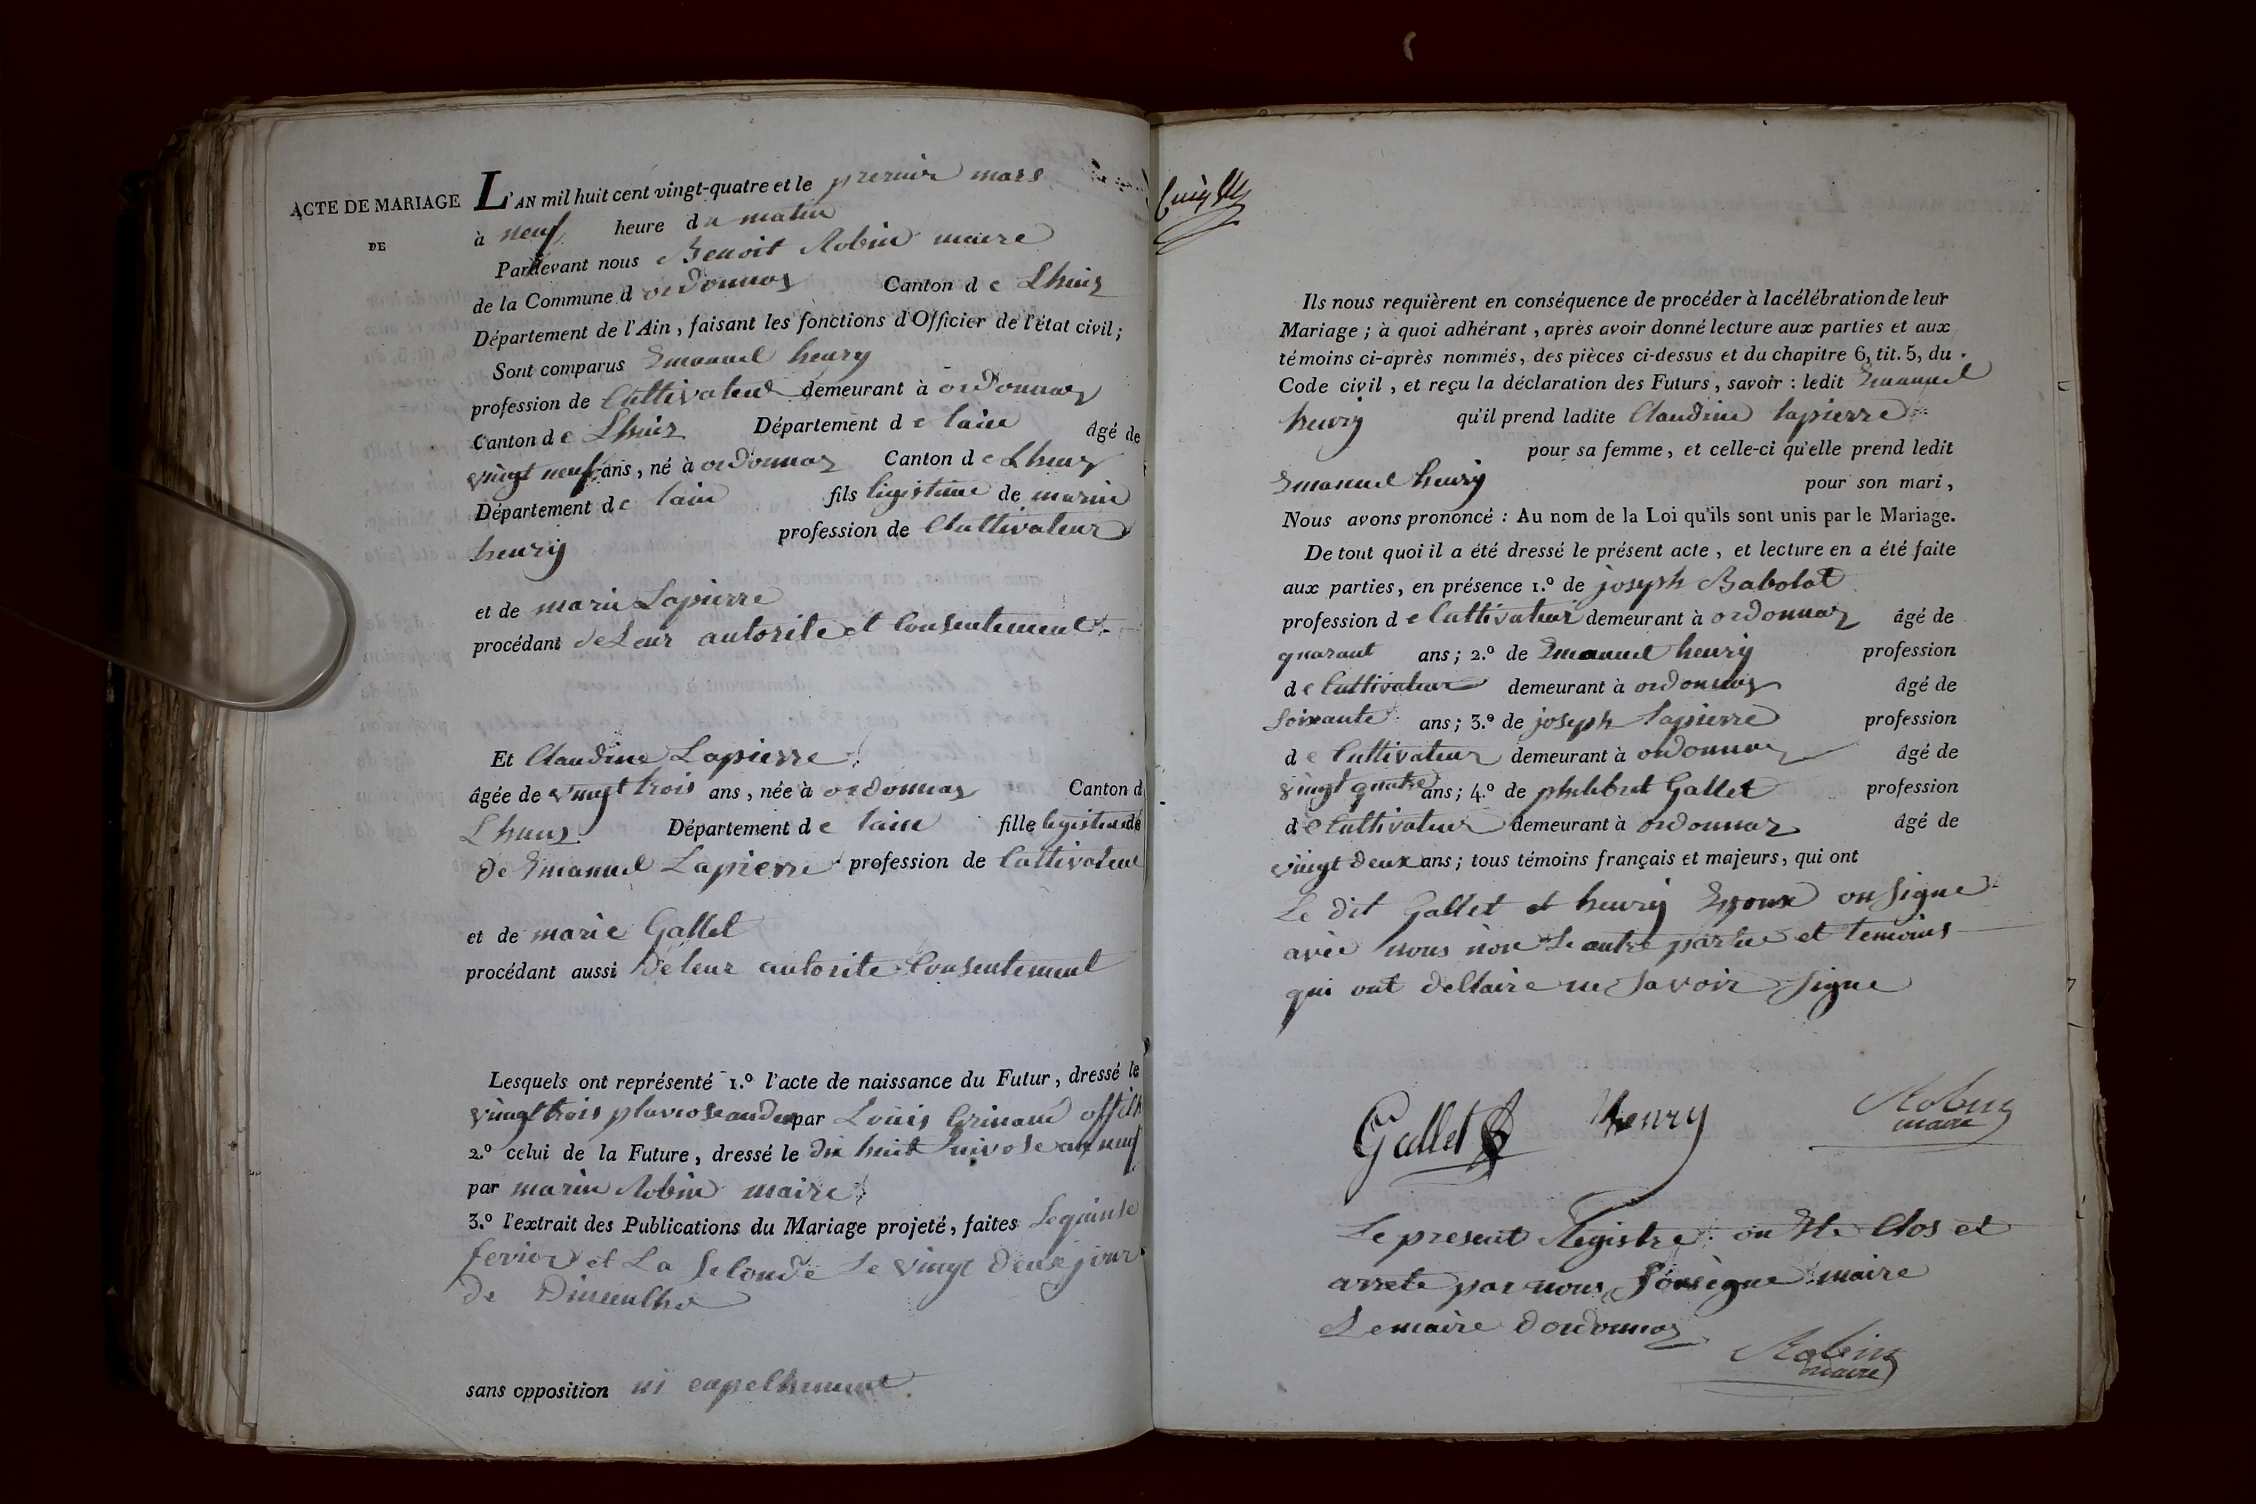 ACTE DE MARIAGE
DE
L'AN mil huit cent vingt-quatre et le premier mars
à neuf heure du matin
Pardevant nous Benoit Robin maire
de la Commune d ordonnaz Canton de Lhuis
Département de l'Ain, faisant les fonctions d'Officier de l'état civil;
Sont comparus Emanuel henry
profession de Cultivateur demeurant à ordonnaz
Canton de Lhuis Département de lain âgé de
vingt neuf ans, né à ordonnaz Canton de Lhuis
Département de lain fils ligistime de marin
henry profession de Cultivateur
et de marie Lapierre
procédant de Leur autorite et Consentement
Et Claudine Lapierre
âgée de vingt trois ans, née à ordonnaz Canton d
Lhuis Département de lain fille legistime de
de Emanuel Lapierre profession de Cultivateur
et de marie Gallet
procédant aussi de leur autorite Consentement
Lesquels ont représenté 1.º l'acte de naissance du Futur, dressé le
vingt trois pluviose an deux par Louis Grinand
2.º celui de la Future, dressé le dix huit nivose an neuf
par marin Robin maire
3.º l'extrait des Publications du Mariage projeté, faites Le quinse
fevier et La Seconde Le vingt deux jour
de Dimenche
sans opposition ni
Ils nous requièrent en conséquence de procéder à la célébration de leur
Mariage; à quoi adhérant, après avoir donné lecture aux parties et aux
témoins ci-après nommés, des pièces ci-dessus et du chapitre 6, tit. 5, du
Code civil, et reçu la déclaration des Futurs, savoir: ledit Emanuel
henry qu'il prend ladite Claudine lapierre
pour sa femme, et celle-ci qu'elle prend ledit
Emanuel henry pour son mari,
Nous avons prononcé: Au nom de la Loi qu'ils sont unis par le Mariage.
De tout quoi il a été dressé le présent acte, et lecture en a été faite
aux parties, en présence 1.º de joseph Babolat
profession de Cultivateur demeurant à ordonnaz âgé de
quarant ans; 2.º de Emanuel henry profession
de Cultivateur demeurant à ordonnaz âgé de
soixante ans; 3.º de joseph lapierre profession
de Cultivateur demeurant à ordonnaz âgé de
vingt quatre ans; 4.º de philibert Gallet profession
de Cultivateur demeurant à ordonnaz âgé de
vingt deux ans; tous témoins français et majeurs, qui ont
Le dit Gallet et henry Epoux on signe
avec nous non Le autre partie et temoins
qui ont dellaire ne savoir signe
Gallet
henry
Robin
maire
Le present Registre on Ete Clos et
arrete par nous Sousigne maire
Le maire dordonnaz
Robin
maire